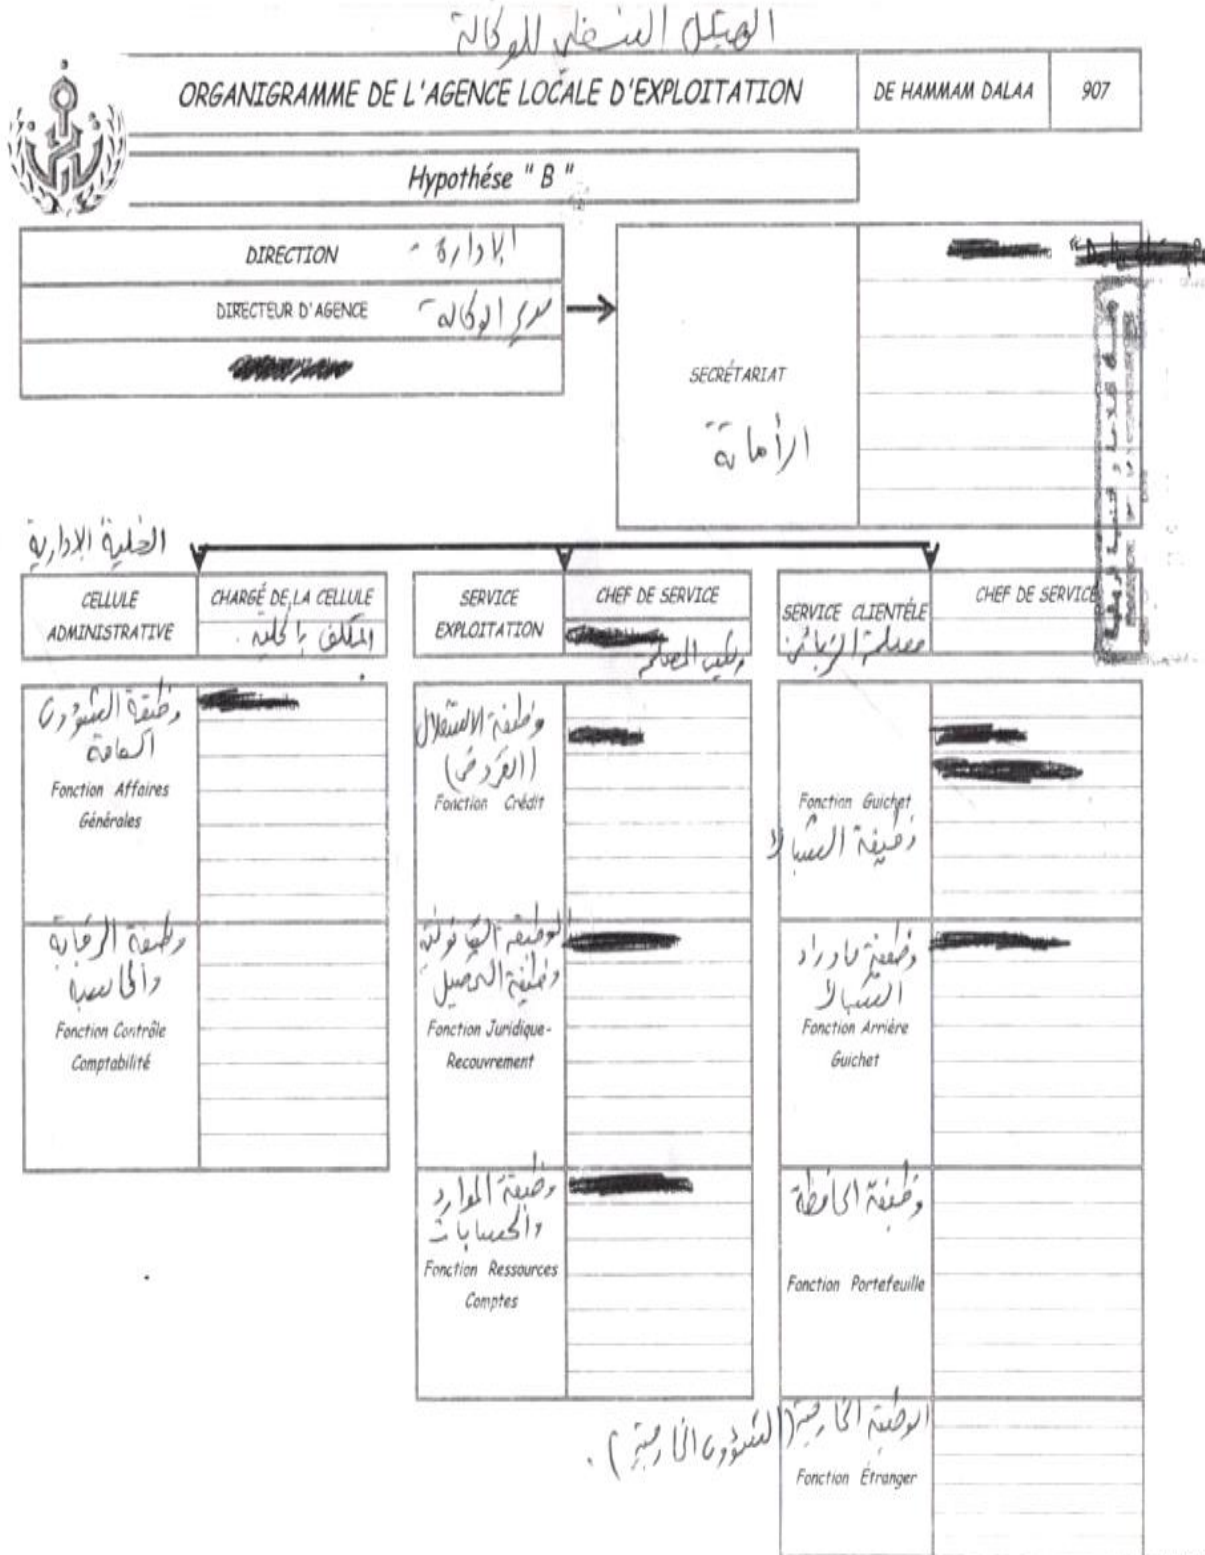 الهيكل التنظيمي للوكالة
ORGANIGRAMME DE L'AGENCE LOCALE D'EXPLOITATION
DE HAMMAM DALAA
907
Hypothése " B "
DIRECTION الإدارة
DIRECTEUR D'AGENCE مدير الوكالة
SECRÉTARIAT
الأمانة
الخلية الإدارية
CELLULE
ADMINISTRATIVE
CHARGÉ DE LA CELLULE
المكلف بالخلية
SERVICE
EXPLOITATION
CHEF DE SERVICE
SERVICE CLIENTÉLE
مصلحة الزبائن
CHEF DE SERVICE
وظيفة الشؤون
العامة
Fonction Affaires
Générales
وظيفة الرقابة
والمحاسبة
Fonction Contrôle
Comptabilité
وظيفة الاستغلال
(القروض)
Fonction Crédit
الوظيفة القانونية
وظيفة التحصيل
Fonction Juridique-
Recouvrement
وظيفة الموارد
والحسابات
Fonction Ressources
Comptes
Fonction Guichet
وظيفة الشباك
وظيفة ماوراء
الشباك
Fonction Arrière
Guichet
وظيفة الحافظة
Fonction Portefeuille
الوظيفة الخارجية (الشؤون الخارجية).
Fonction Étranger